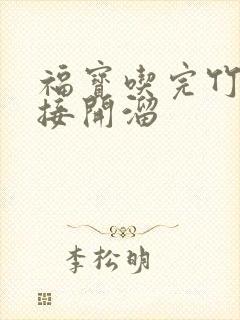 福寶喫完竹
接開溜
李松明